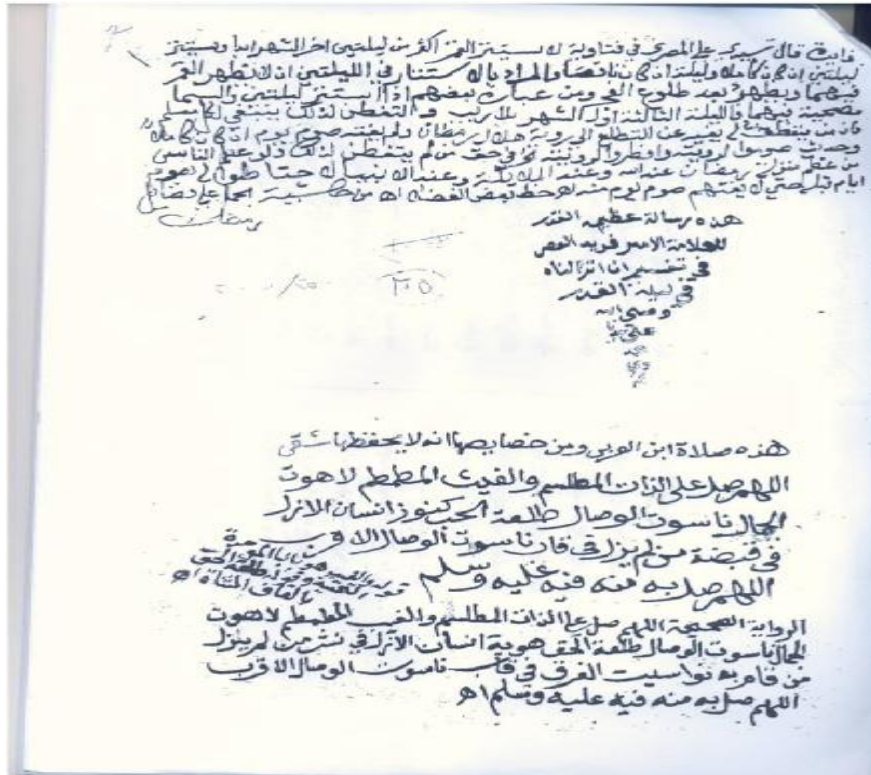 فايدة قال سيدي علي المصري في فتاويه لا يستتر القمر اكثر من ليلتين اخر الشهر ابدا ويستتر
ليلتين ان كان كاملا وليلة ان كان ناقصا والمراد بالاستتار في الليلتين ان لا يظهر القمر
فيهما ويظهر بعد طلوع الفجر ومن عبارة بعضهم اذا استتر ليلتين والسما
مصحية فيهما فالليلة الثالثة اول الشهر بلا ريب والتفطن لذلك ينبغي لكل مسلم
فان من يتفطن له يغنيه عن التطلع الى روية هلال رمضان ولم يفته صوم يوم ان كان كاملا
وحديث صوموا لرويته وافطروا لرويته في حق من لم يتفطن لذلك ولو علم الناس
من عظم منزلة رمضان عند الله وعند الملائكة وعند الانبيا لاحتاطوا له بصوم
ايام قبله حتى لا يفتهم صوم يوم منه اه خط بعض الفضلا اه من حاشية على فضائل
رمضان
هذه رسالة عظيمة القدر
للعلامة الامير فريد العصر
في تفسير انا انزلناه
في ليلة القدر
وصلى الله
على
٣٥
هذه صلاة ابن العربي ومن خصايصها انه لا يحفظها شقي
اللهم صل على الذات المطلسم والغيث المطمطم لاهوت
الجمال ناسوت الوصال طلعة الحب كنوز انسان الازل
في قبضة من لم يزل في قاب ناسوت الوصال الاقرب
اللهم صل به منه فيه عليه وسلم
قوله والغيب هو بالغين المعجمة
وقوله طلعة الحق
بالقاف المثناة اه
الرواية الصحيحة اللهم صل على الذات المطلسم والغيب المطمطم لاهوت
الجمال ناسوت الوصال طلعة الحق هوية انسان الازل في نشر من لم يزل
من قام به نواسيت الفرق في قاب ناسوت الوصال الاقرب
اللهم صل به منه فيه عليه وسلم اه